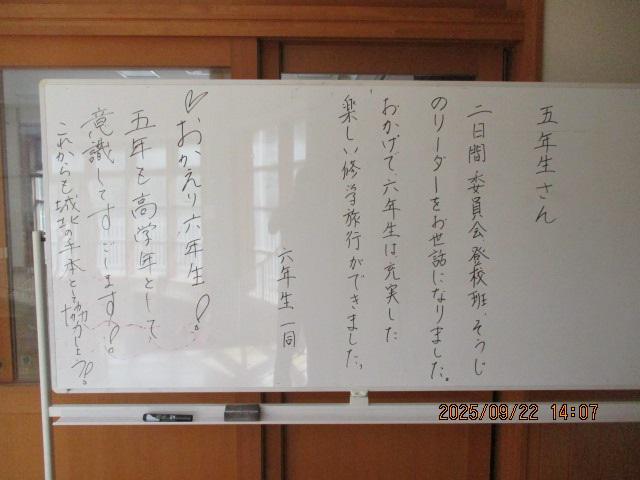 五年生さん
二日間委員会、登校班、そうじ
のリーダーをお世話になりました。
おかげで、六年生は、充実した
楽しい修学旅行ができました。
六年生一同
おかえり六年生!
五年も高学年として、
意識してすごします!。
これからも城北の手本として協力しよう!。
2025/09/22 14:07